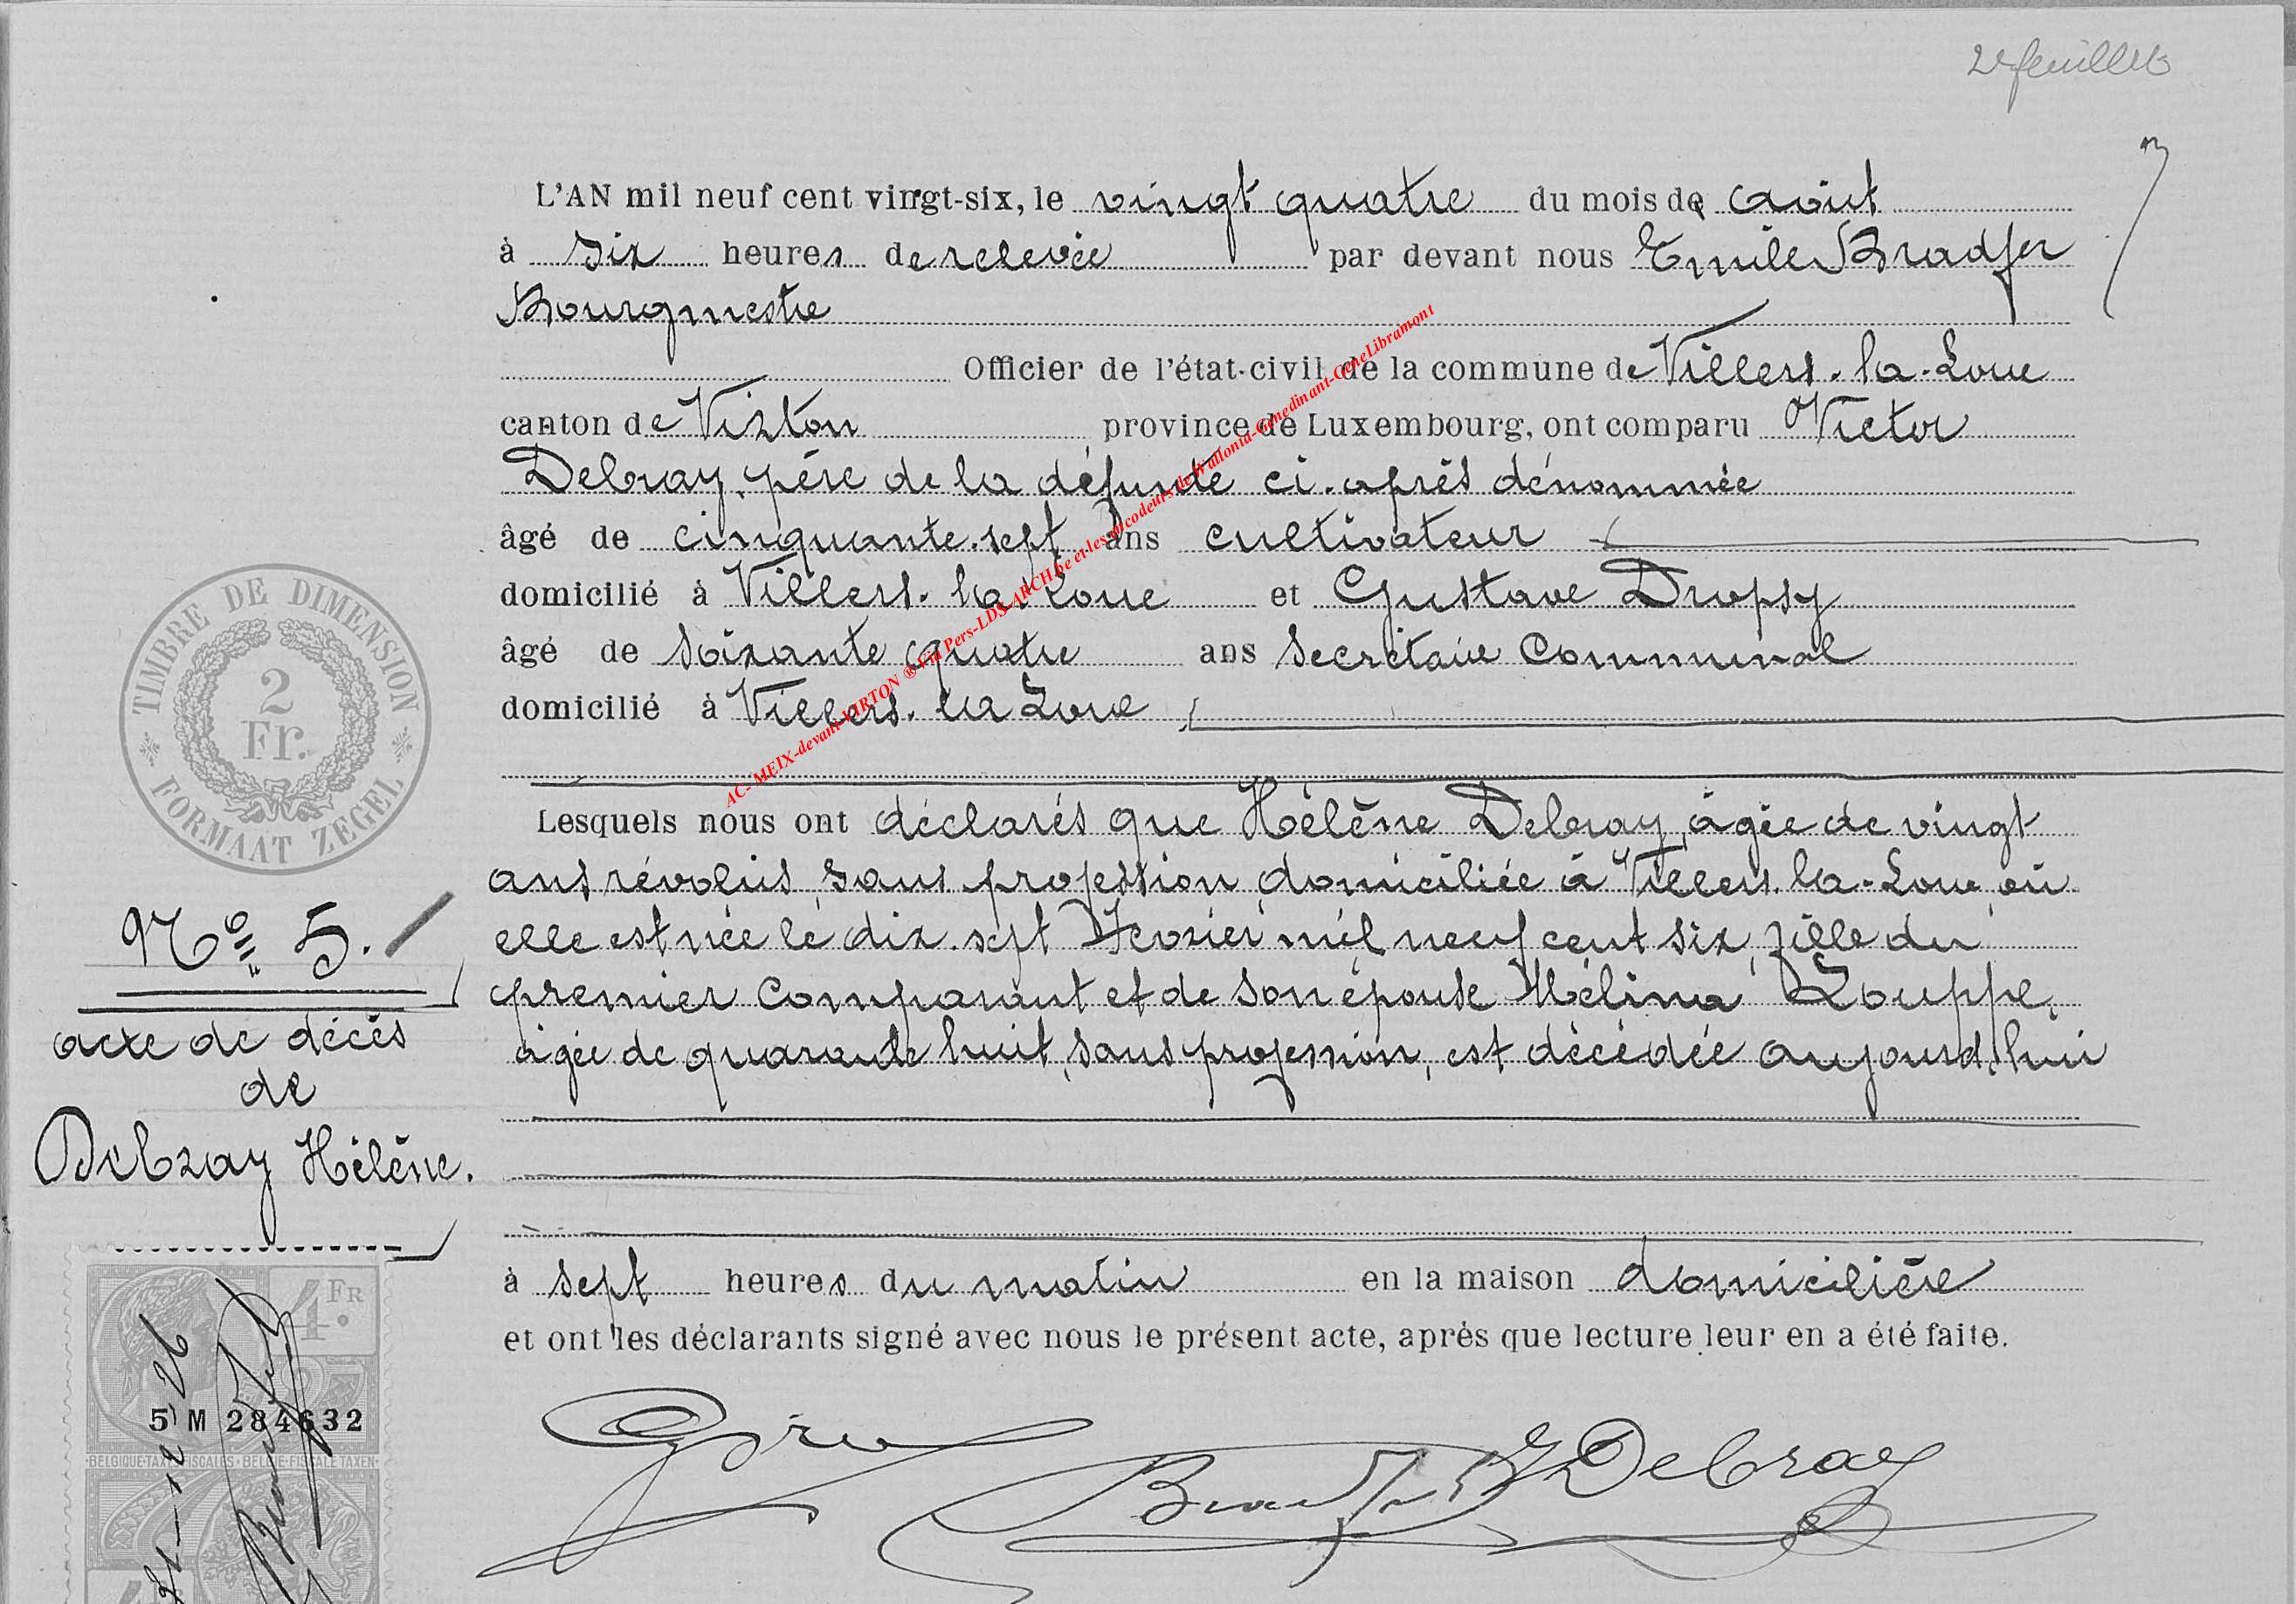 2e feuillet
L'AN mil neuf cent vingt-six, le vingt quatre du mois de août
à six heures de relevée par devant nous Emile Bradfer
Bourgmestre
Officier de l'état-civil de la commune de Villers-la-Loue
canton de Virton province de Luxembourg, ont comparu Victor
Debray, père de la défunte ci-après dénommée
âgé de cinquante-sept ans cultivateur
domicilié à Villers-la-Loue et Gustave Dropsy
âgé de soixante quatre ans secrétaire communal
domicilié à Villers-la Loue
Lesquels nous ont déclarés que Hélène Debray, âgée de vingt
ans révolus, sans profession, domiciliée à Villers-la-Loue, où
elle est née le dix-sept Février mil neuf cent six, fille du
premier comparant et de son épouse Mélina Louppe,
âgée de quarante huit, sans profession, est décédée aujourd'hui
à sept heures du matin en la maison domicilière
et ont les déclarants signé avec nous le présent acte, après que lecture leur en a été faite.
Bradfer V Debray
TIMBRE DE DIMENSION
2
Fr.
FORMAAT ZEGEL
No 5.
acte de décès
de
Debray Hélène.
4 FR
5 M 284632
BELGIQUE-TAXES FISCALES · BELGIE-FISCALE TAXEN
AC- MEIX-devant-VIRTON ® Via Pers-LDS-ARCH.be et les encodeurs de Wallonia-Genedinant-GeneLibramont